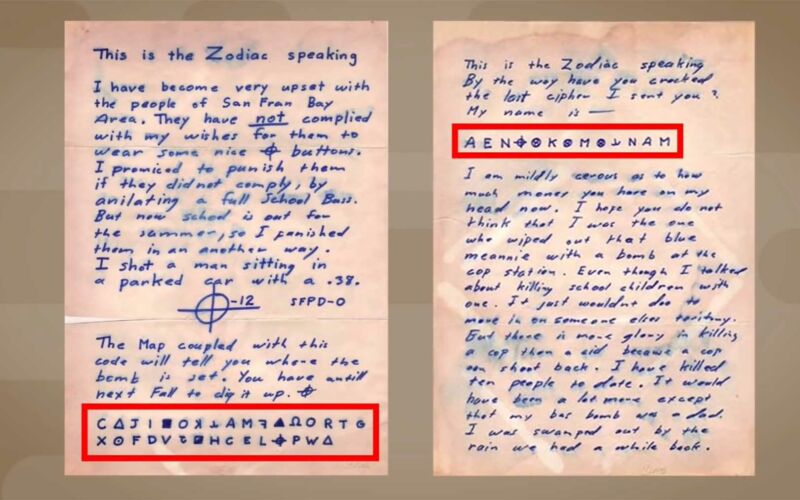 This is the Zodiac speaking
I have become very upset with
the people of San Fran Bay
Area. They have not complied
with my wishes for them to
wear some nice ⌖ buttons.
I promiced to punish them
if they did not comply, by
anilating a full School Buss.
But now school is out for
the summer, so I punished
them in an another way.
I shot a man sitting in
a parked car with a .38.
⌖-12 SFPD-0
The Map coupled with this
code will tell you where the
bomb is set. You have untill
next Fall to dig it up. ⌖
C Δ J I ■ O ꓘ ⅄ A M ꟻ ▲ Ω O R T G
X ⊙ F D V Ƨ ■ H C E L ⌖ P W Δ
This is the Zodiac speaking
By the way have you cracked
the last cipher I sent you?
My name is —
A E N ⌖ ⊗ K ⊗ M ⊗ ⅃ N A M
I am mildly cerous as to how
much money you have on my
head now. I hope you do not
think that I was the one
who wiped out that blue
meannie with a bomb at the
cop station. Even though I talked
about killing school children with
one. It just wouldnt doo to
move in on someone elses teritory.
But there is more glory in killing
a cop then a cid because a cop
can shoot back. I have killed
ten people to date. It would
have been a lot more except
that my bus bomb was a dud.
I was swamped out by the
rain we had a while back.